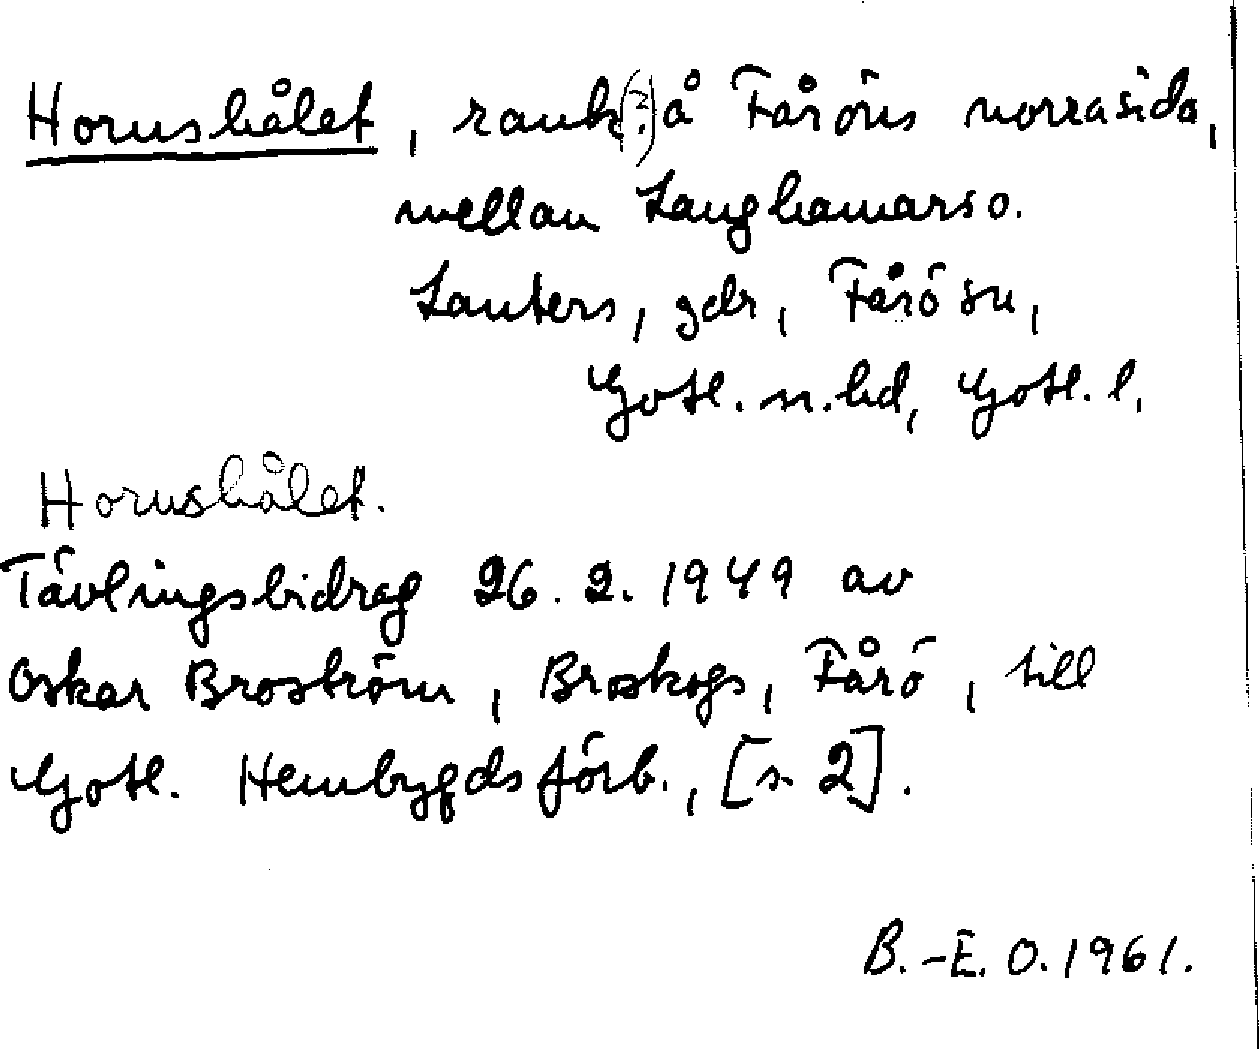 Hornshålet, rauk(?) å Fåröns norra sida,
mellan Langhamars o.
Lauters, gdr, Fårö sn,
Gotl. n. hd, Gotl. l.
Hornshålet.
Tävlingsbidrag 26. 2. 1949 av
Oskar Broström, Broskogs, Fårö, till
Gotl. Hembygdsförb., [s. 2].
B.-E. O. 1961.